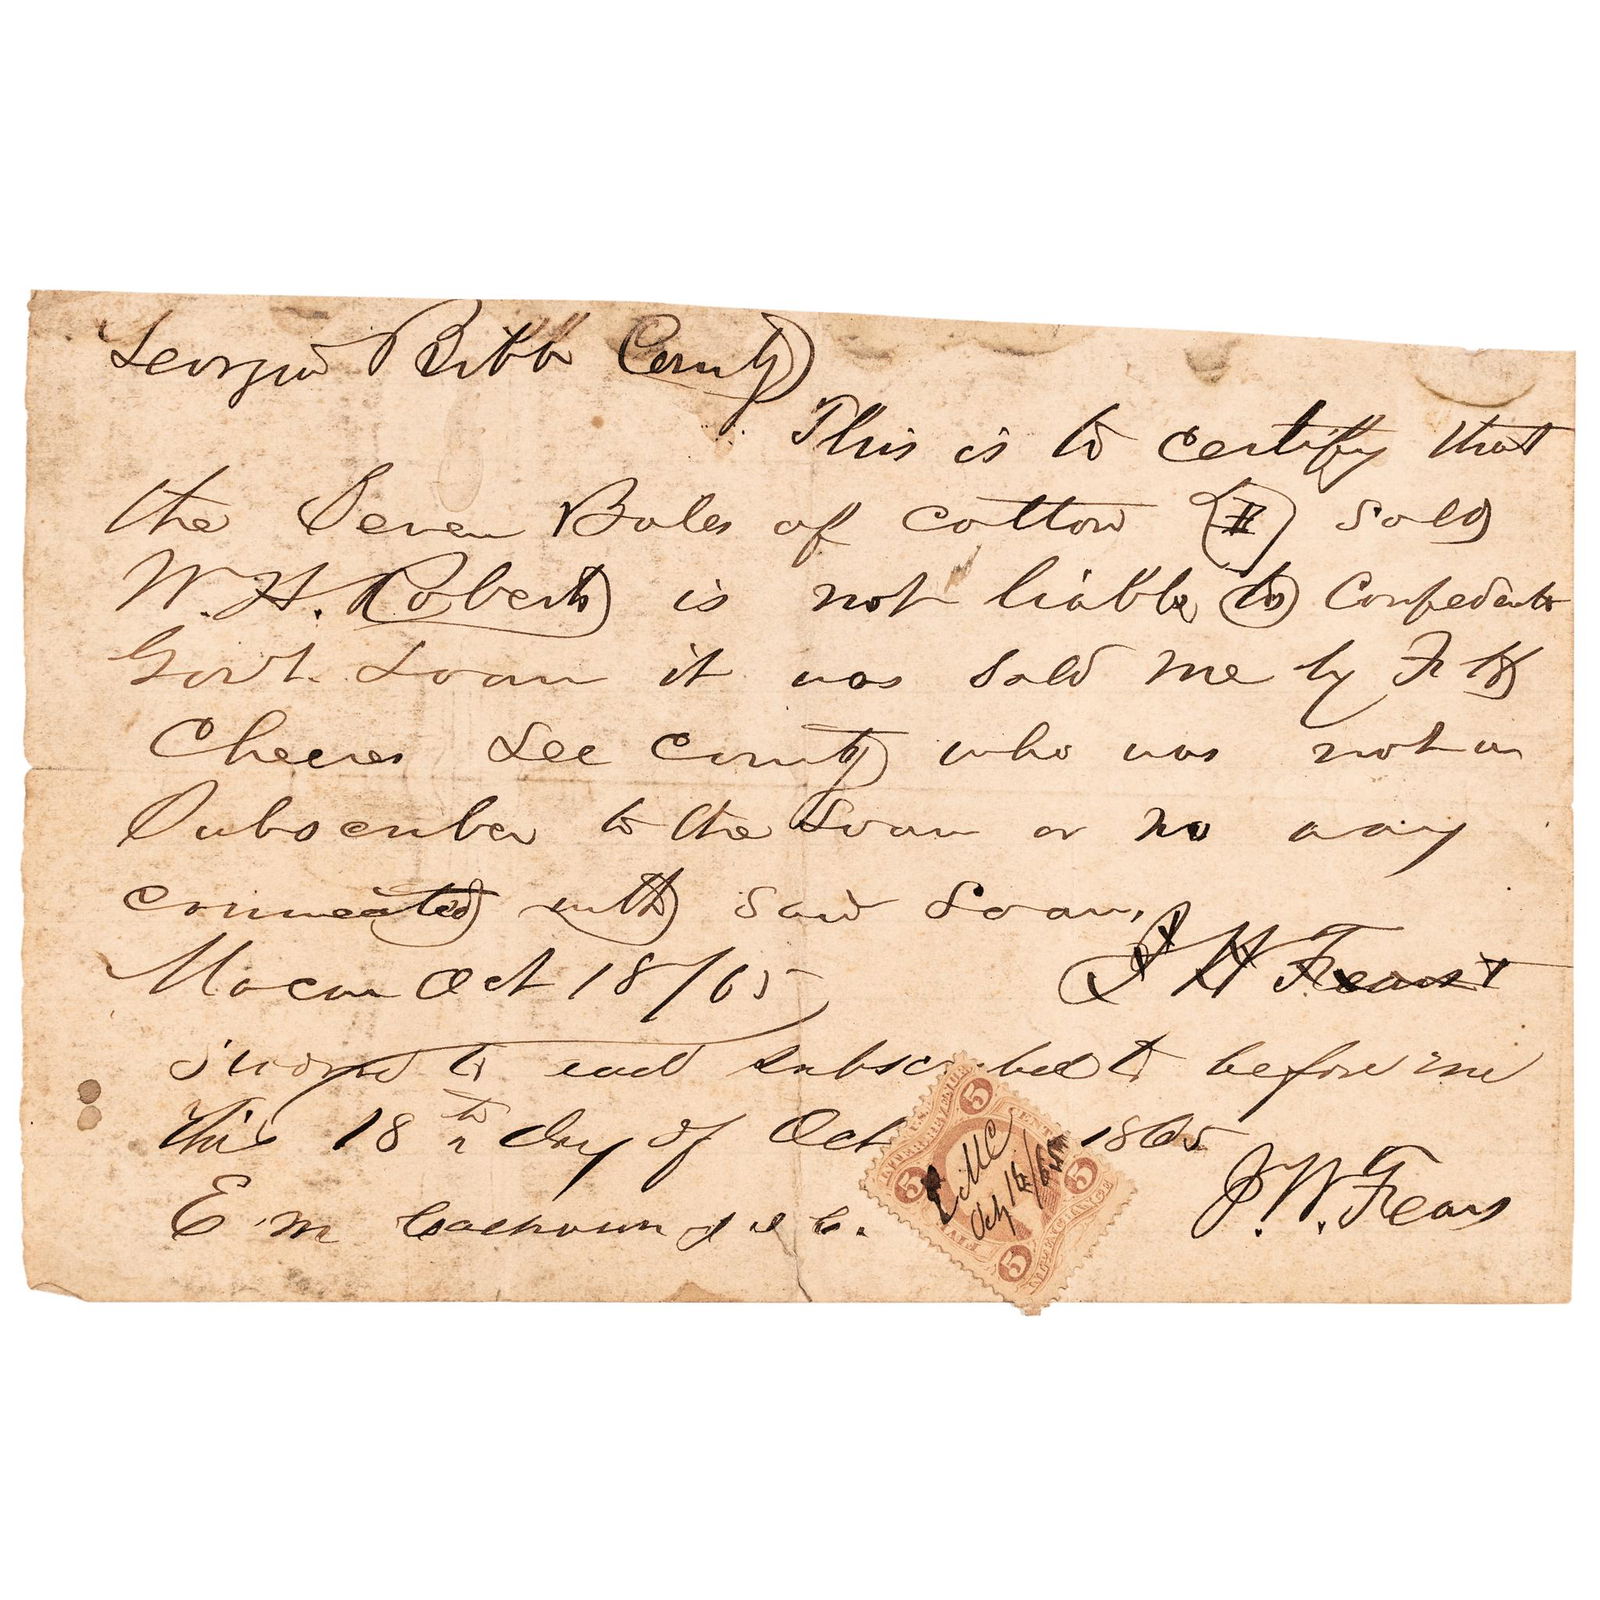 Georgia Bibb County
This is to certify that
the Seven Bales of cotton I sold
W. H. Roberts is not liable to Confederate
Govt. Loan it was sold me by
Cheeves Lee County who was not a
Subscriber to the Loan or no way
connected with said Loan.
Macon Oct 18/65
Sworn to and subscribed to before me
this 18th day of Oct 1865
E. M. Calhoun J. W. Fears
U.S. INTER. REVENUE
5 5 5 5
EMC
Oct 18/65